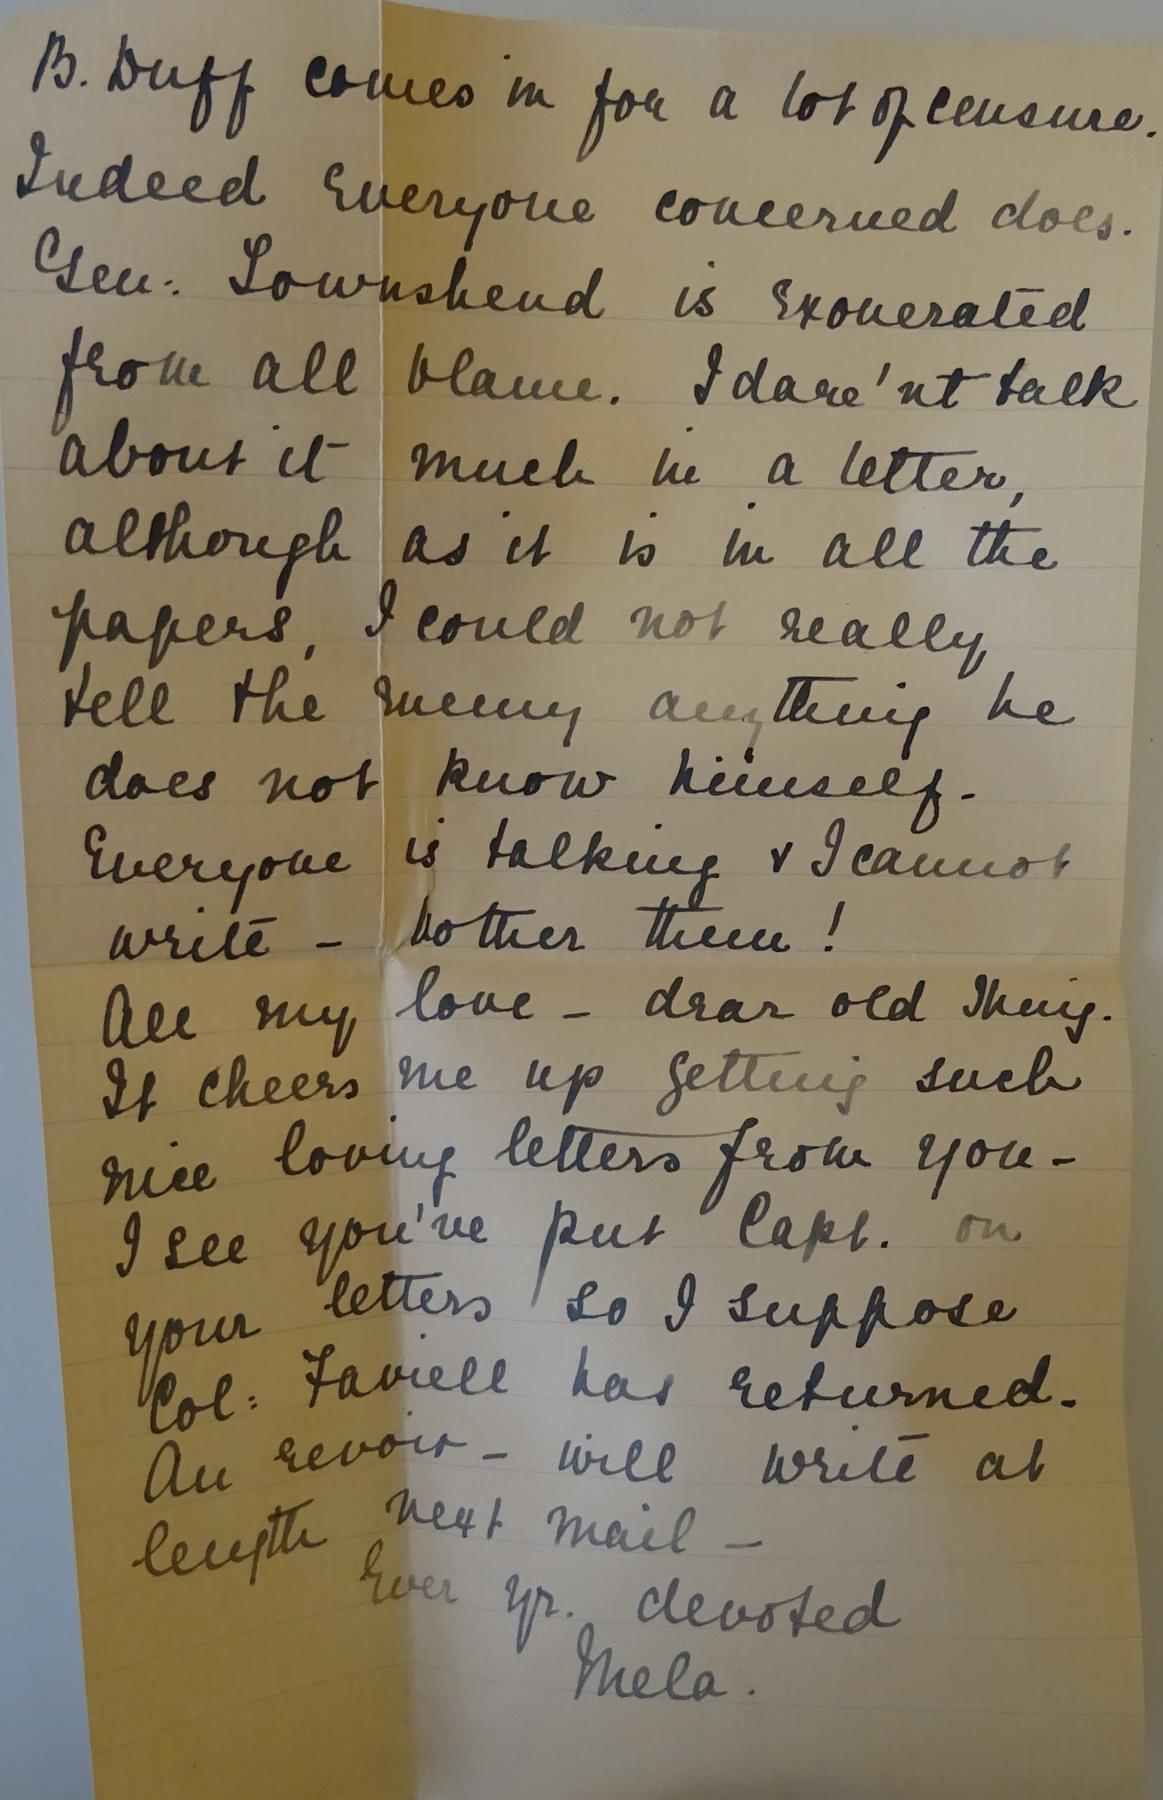 B. Duff comes in for a lot of censure.
Indeed Everyone concerned does.
Gen: Townshend is Exonerated
from all blame. I dare'nt talk
about it much in a letter,
although as it is in all the
papers, I could not really
tell the Enemy anything he
does not know himself-
Everyone is talking & I cannot
write - bother them!
All my love - dear old Thing.
It cheers me up getting such
nice loving letters from you-
I see you've put Capt. on
your letters so I suppose
Col: Faviell has returned-
Au revoir - will write at
length next mail -
Ever yr. devoted
Mela.